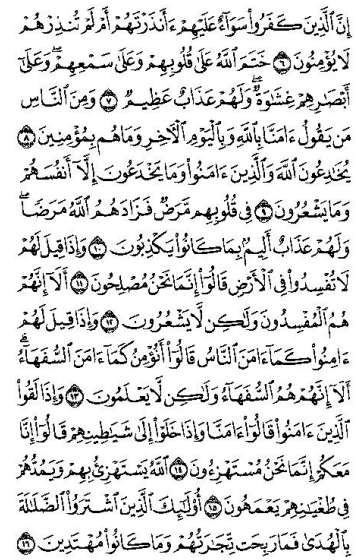 إِنَّ ٱلَّذِينَ كَفَرُوا۟ سَوَآءٌ عَلَيْهِمْ ءَأَنذَرْتَهُمْ أَمْ لَمْ تُنذِرْهُمْ
لَا يُؤْمِنُونَ ۝٦ خَتَمَ ٱللَّهُ عَلَىٰ قُلُوبِهِمْ وَعَلَىٰ سَمْعِهِمْ ۖ وَعَلَىٰٓ
أَبْصَـٰرِهِمْ غِشَـٰوَةٌ ۖ وَلَهُمْ عَذَابٌ عَظِيمٌ ۝٧ وَمِنَ ٱلنَّاسِ
مَن يَقُولُ ءَامَنَّا بِٱللَّهِ وَبِٱلْيَوْمِ ٱلْـَٔاخِرِ وَمَا هُم بِمُؤْمِنِينَ ۝٨
يُخَـٰدِعُونَ ٱللَّهَ وَٱلَّذِينَ ءَامَنُوا۟ وَمَا يَخْدَعُونَ إِلَّآ أَنفُسَهُمْ
وَمَا يَشْعُرُونَ ۝٩ فِى قُلُوبِهِم مَّرَضٌ فَزَادَهُمُ ٱللَّهُ مَرَضًا ۖ
وَلَهُمْ عَذَابٌ أَلِيمٌۢ بِمَا كَانُوا۟ يَكْذِبُونَ ۝١٠ وَإِذَا قِيلَ لَهُمْ
لَا تُفْسِدُوا۟ فِى ٱلْأَرْضِ قَالُوٓا۟ إِنَّمَا نَحْنُ مُصْلِحُونَ ۝١١ أَلَآ إِنَّهُمْ
هُمُ ٱلْمُفْسِدُونَ وَلَـٰكِن لَّا يَشْعُرُونَ ۝١٢ وَإِذَا قِيلَ لَهُمْ
ءَامِنُوا۟ كَمَآ ءَامَنَ ٱلنَّاسُ قَالُوٓا۟ أَنُؤْمِنُ كَمَآ ءَامَنَ ٱلسُّفَهَآءُ ۗ
أَلَآ إِنَّهُمْ هُمُ ٱلسُّفَهَآءُ وَلَـٰكِن لَّا يَعْلَمُونَ ۝١٣ وَإِذَا لَقُوا۟
ٱلَّذِينَ ءَامَنُوا۟ قَالُوٓا۟ ءَامَنَّا وَإِذَا خَلَوْا۟ إِلَىٰ شَيَـٰطِينِهِمْ قَالُوٓا۟ إِنَّا
مَعَكُمْ إِنَّمَا نَحْنُ مُسْتَهْزِءُونَ ۝١٤ ٱللَّهُ يَسْتَهْزِئُ بِهِمْ وَيَمُدُّهُمْ
فِى طُغْيَـٰنِهِمْ يَعْمَهُونَ ۝١٥ أُو۟لَـٰٓئِكَ ٱلَّذِينَ ٱشْتَرَوُا۟ ٱلضَّلَـٰلَةَ
بِٱلْهُدَىٰ فَمَا رَبِحَت تِّجَـٰرَتُهُمْ وَمَا كَانُوا۟ مُهْتَدِينَ ۝١٦